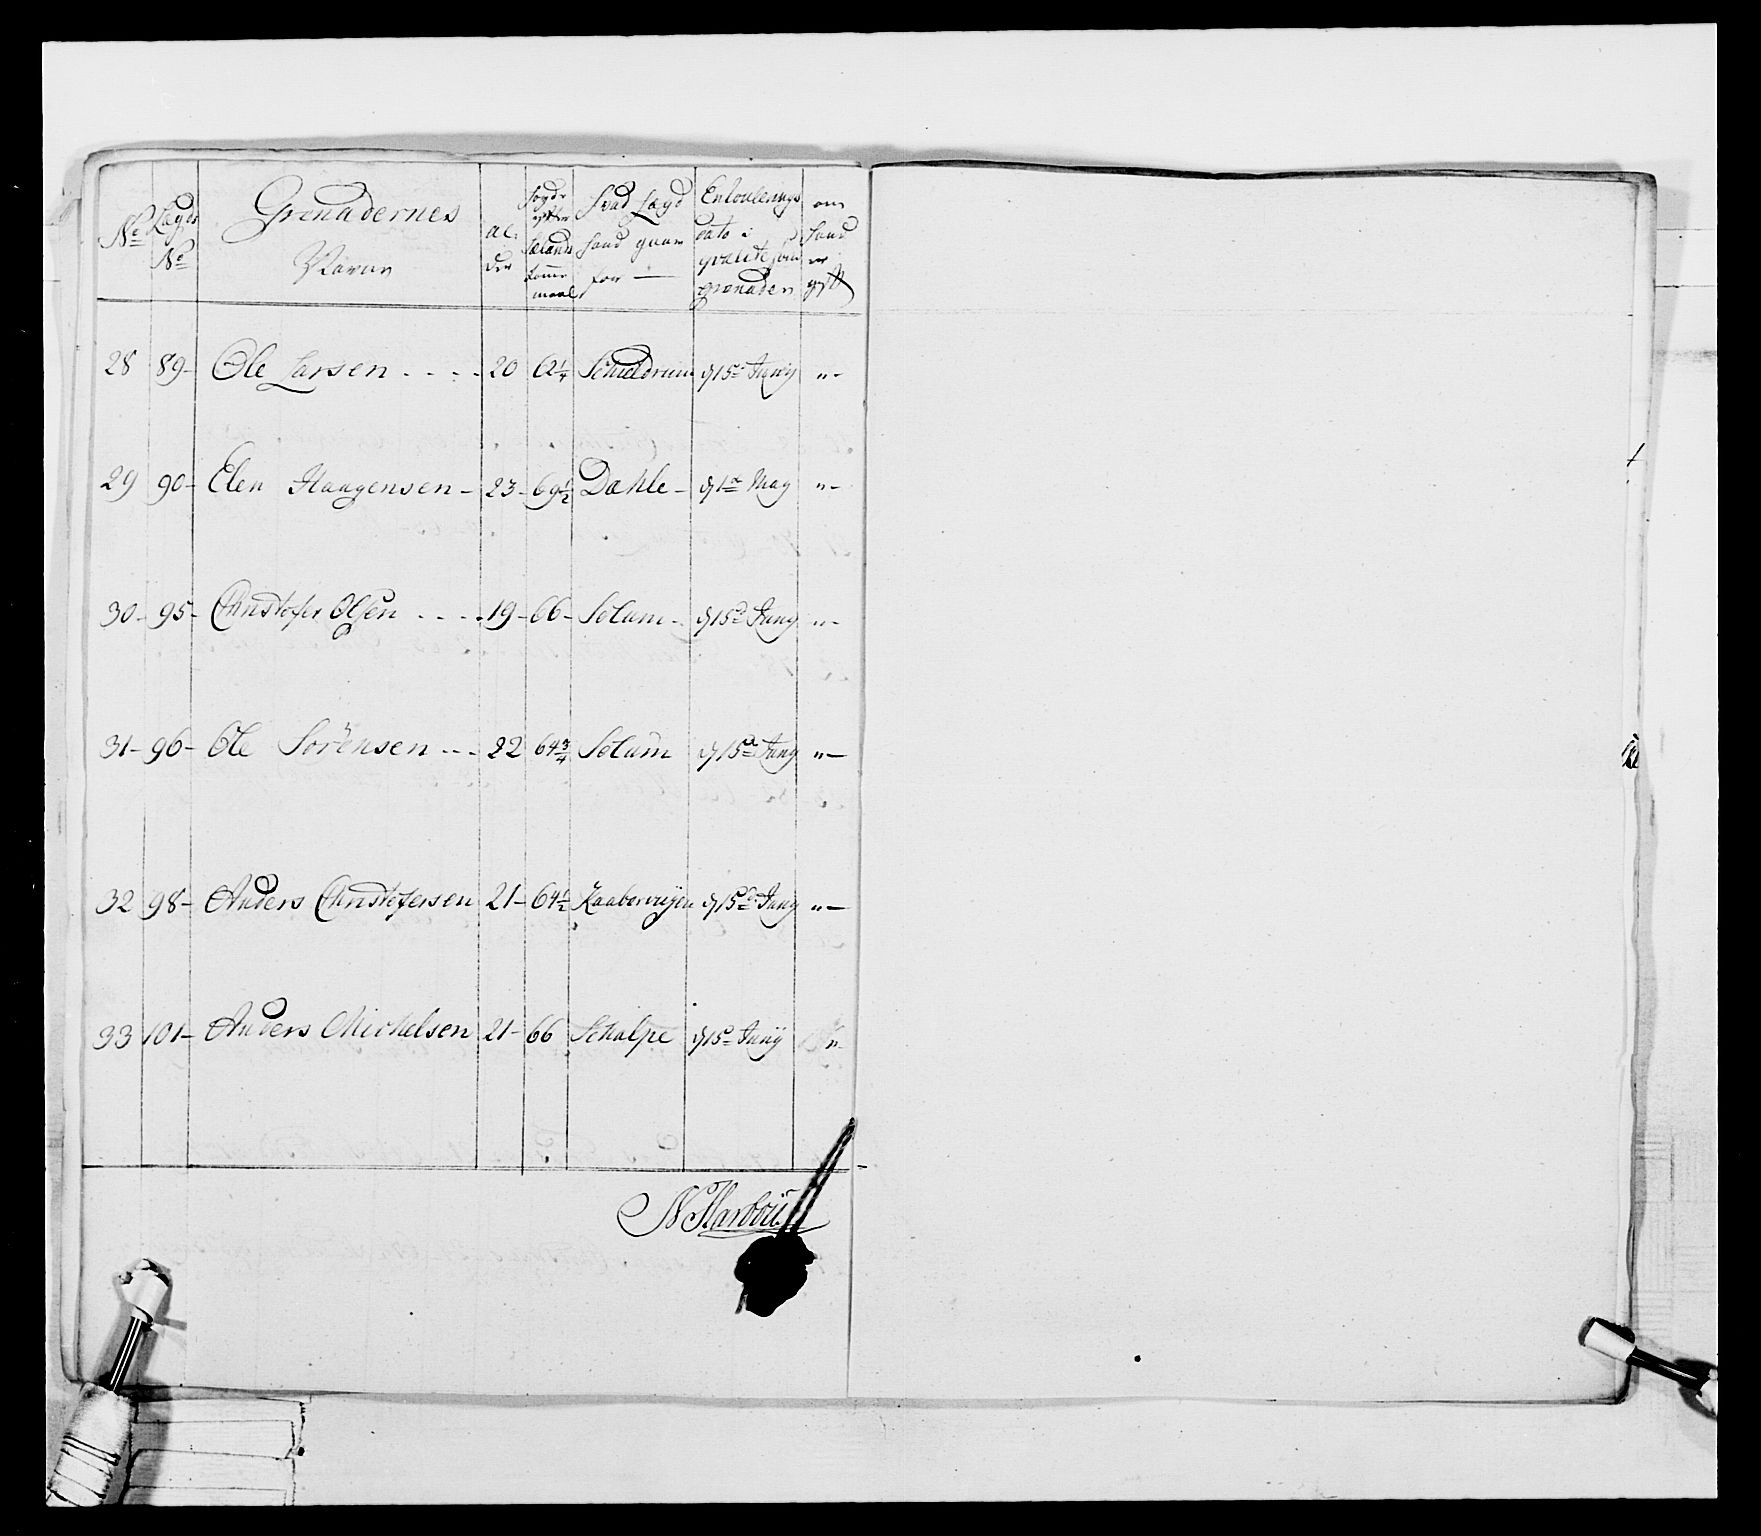 No Lægds No Grenadernes Navne al: der Høyde efter Sælands Tomme maal hvad Lægd hand gaar for — Enroulerings dato i qvalite som grenader om hand er gyft
28 89- Ole Larsen . . . . 20 62¼ Schieldrum d 15de Junij „-
29 90- Elen Haagensen - 23- 69½ Dæhle - d 1te May „-
30- 95- Christofer Olsen . . . . 19- 66- Solum - d 15de Junij „-
31- 96- Ole Sörensen . . . 22 64¾ Solum d 15de Junij „-
32 98- Anders Christofersen 21- 64½ d 15de Junij „-
33 101- Anders Michelsen 21- 66 Schalpe d 15de Junij „-
N Harboü